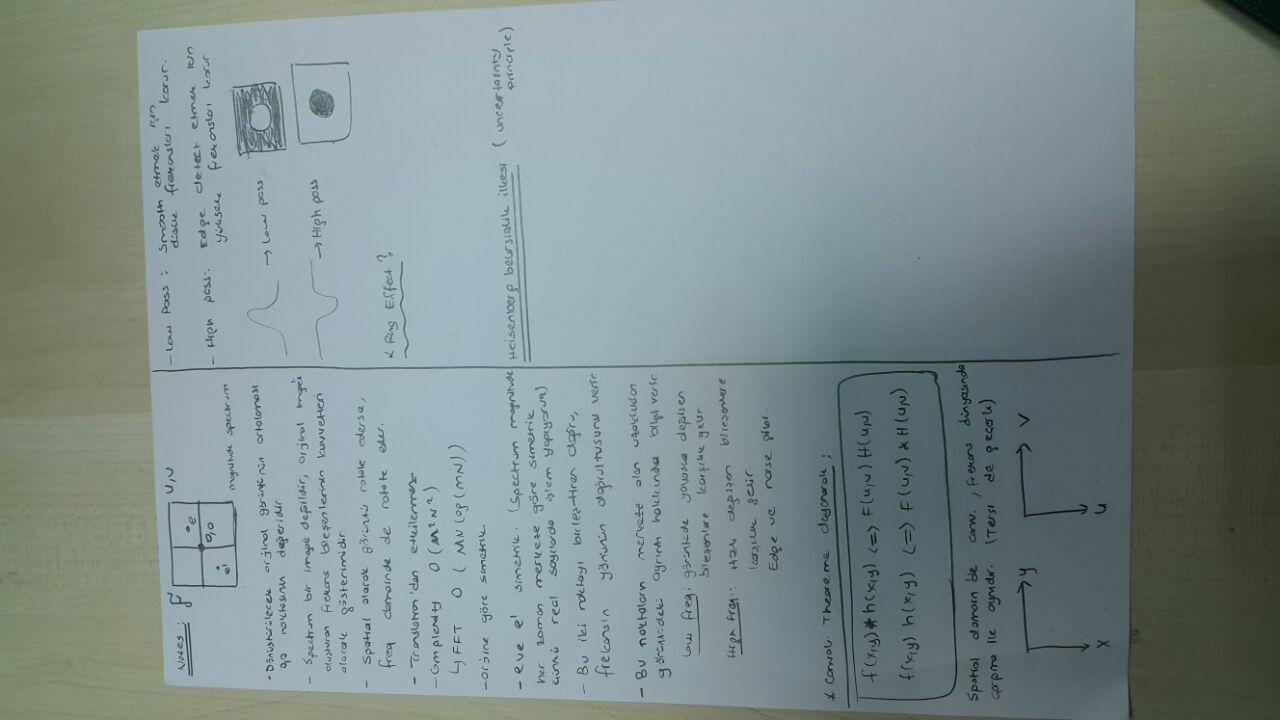 Notes :
F
u,v
e
0,0
e'
magnitude spectrum
- Dönüştürülecek orjinal görüntünün ortalaması
0,0 noktasının değeridir.
- Spectrum bir image değildir, orjinal imagei
oluşturan frekans bileşenlerinin kuvvetleri
olarak gösterimidir.
- Spatial olarak görüntü rotate ederse,
freq domainde de rotate eder.
- Translation'dan etkilenmez
- Complexity O(M²N²)
↳ FFT O(MN log(MN))
- orjine göre simetrik
- e ve e' simetrik. (Spectrum magnitude
her zaman merkeze göre simetrik
çünkü real sayılarda işlem yapıyoruz)
- Bu iki noktayı birleştiren doğru,
frekansın yönünün doğrultusunu verir
- Bu noktaların merkeze olan uzaklıkları
görüntüdeki ayrıntı hakkında bilgi verir.
Low freq: görüntüde yavaşça değişen
bileşenlere karşılık gelir
High freq.: Hızlı değişen bileşenlere
karşılık gelir
Edge ve noise gibi.
* Convol. Theoreme dayanarak ;
f(x,y) * h(x,y) <=> F(u,v) H(u,v)
f(x,y) h(x,y) <=> F(u,v) * H(u,v)
Spatial domain de conv., frekans dünyasında
çarpma ile aynıdır. (Tersi de geçerli)
y
x
v
u
- Low Pass : Smooth etmek için
düşük frekansları korur.
- High pass: Edge detect etmek için
yüksek frekansları korur
→ Low pass
→ High pass
* Ring Effect?
Heisenberg belirsizlik ilkesi (uncertainty
principle)